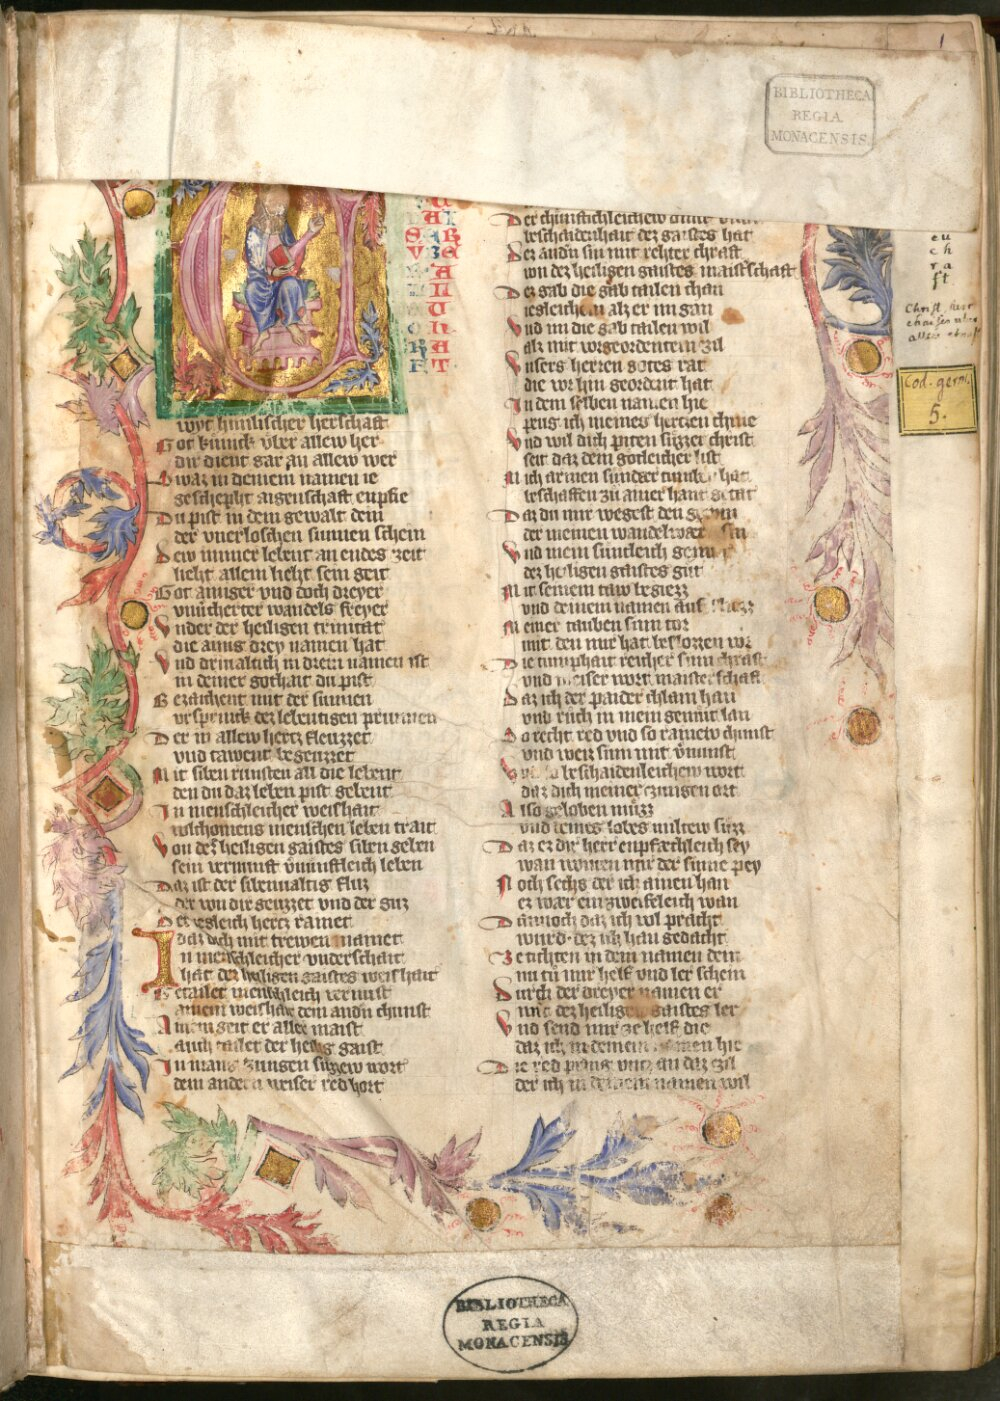 1
BIBLIOTHECA
REGIA
MONACENSIS
wirt himlischer herschaft
Got kunick vber allew her
dir dient gar an allew wer
Swaz in deinem namen ie
geschepht aigenschaft enpfie
Du pist in dem gewalt dein
der vnerloschen sunnen schein
Dew immer lebent an endes zeit
lieht allem lieht sein geit
Got ainiger vnd doch dreyer
wandels freyer
Vnder der heiligen trinitat
die ainig drey namen hat
Vnd drivaltich in drein namen ist
in deiner gothait du pist
Bezaichent mit der sunnen
vrsprinck dez lebentigen prunnen
Der in allew hertz fleuzzet
vnd tawent begeuzzet
Mit siben runsten all die lebent
den du daz leben pist gebent
In menschleicher weishait
volchomens menschen leben trait
Von des heiligen gaistes siben geben
sein vernunft vernunftleich leben
Daz ist der sibenualtig fluz
der von dir geuzzet vnd der guz
Der iegleich hertz ramet
daz dich mit trewen namet
In menschleicher vnderschait
hat dez heiligen gaistes weishait
Getailet menschleich vernunst
ainem weishait dem andern chunst
Ainem geit er aller maist
auch tailet der heilig gaist
In manig zungen suzzew wort
dem andern weiser red hort
beschaidenhait dez gaistes hat
Der andern sin mit rehter chraft
von dez heiligen gaistes maisterschaft
Der gab die gab tailen chan
iegleichem alz er im gan
Vnd im die gab tailen wil
alz mit vorgeordentem zil
Vnsers herren gotes rat
die vor hin geordent hat
In dem selben namen hie
peug ich meines hertzen chnie
Vnd wil dich piten suzzer christ
seit daz dem gotleicher list
Mich armen sunder tumben hat
beschaffen zu ainer hant getat
Daz du mir wegest den
der meinen wandelwær sin
Vnd mein suntleich gemut
dez heiligen gaistes gut
Mit seinem taw begiezz
vnd deinem namen auf sliezz
Meiner tauben sinn tor
mit den mir hat beslozzen vor
Die tiumphait reicher sinn chraft
vnd weiser wort maisterschaft
Daz ich der paider chlam han
vnd ruch in mein gemut lan
So recht red vnd so rainew chunst
vnd weiz sinn mit vernunst
Vnd so beschaidenleichew wort
daz dich meiner czungen ort
Also geloben muzz
vnd deines lobes miltew suzz
Daz ez dir herr enpfæchleich sey
wan wonten mir der sinne pey
Noch sechs der ich ainen han
ez wær ein zweifeleich wan
Dannoch daz ich wol pracht
wurd dez ich han gedacht
Ze tichten in dem namen dein
nu tu mir helf vnd ler schein
Durch der dreyer namen er
mit dez heiligen gaistes ler
Vnd send mir ze helf die
daz ich in deinem namen hie
Die red pring vntz an daz zil
der ich in deinem namen wil
eu
ch
ra
ft
Cod. germ.
5.
BIBLIOTHECA
REGIA
MONACENSIS